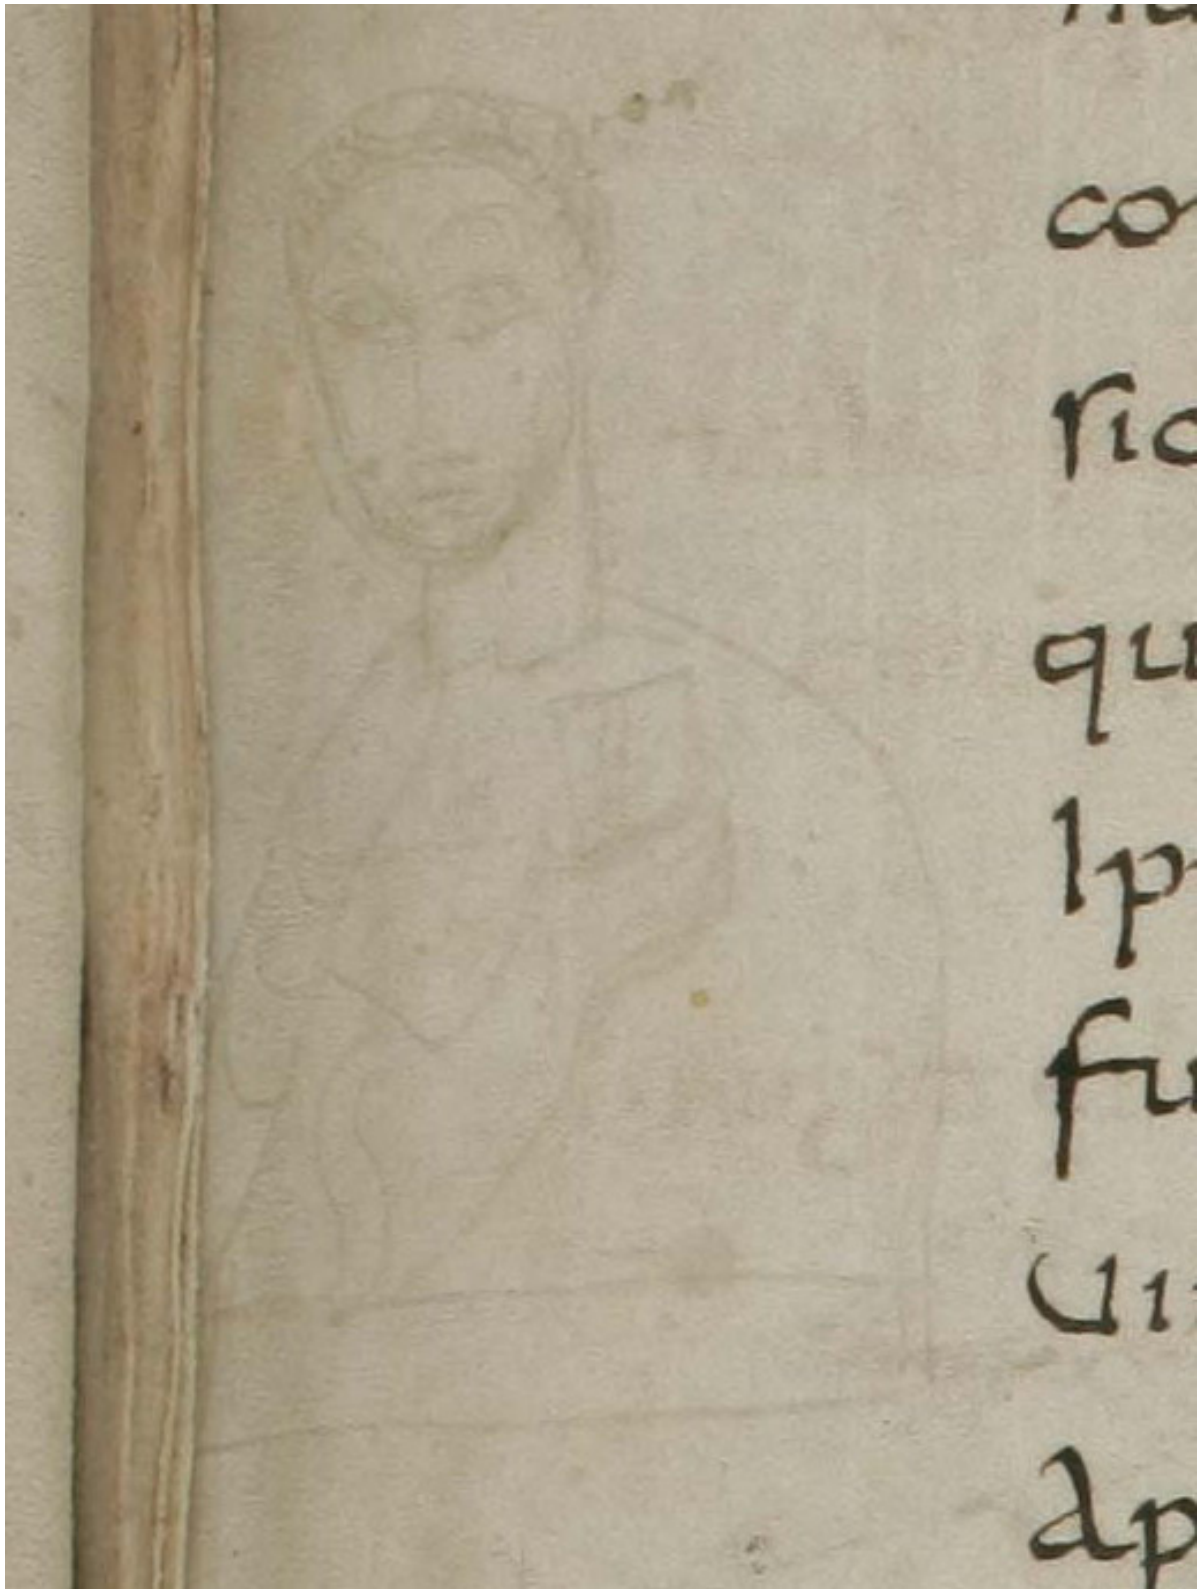 co
ric
qu
lp
fu
Ui
ap